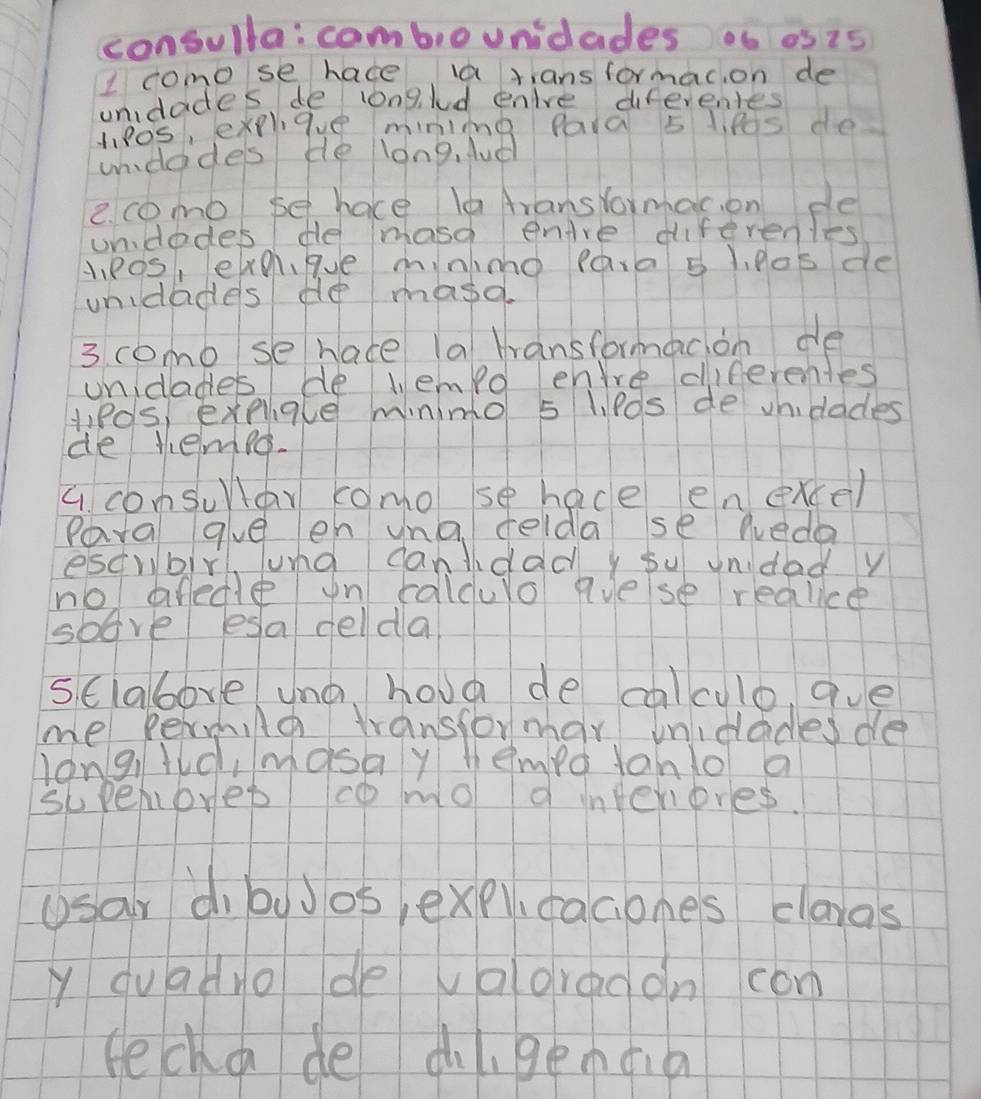 consulta: cambio unidades 06 05 25
1 como se hace la transformacion de
unidades de longitud entre diferentes
tipos, explique minimo para 5 tipos de
unidades de longitud
2. como se hace la transformacion de
unidades de masa entre diferentes
tipos, explique minimo para 5 tipos de
unidades de masa.
3. como se hace la transformación de
unidades de tiempo entre diferentes
tipos, explique minimo 5 tipos de unidades
de tiempo.
4. consultar como se hace en excel
para que en una celda se pueda
escribir una cantidad y su unidad y
no afecte un calculo que se realice
sobre esa celda
5. Elabore una hoja de calculo, que
me permita transformar unidades de
longitud, masa y tiempo tanto a
superiores como a inferiores.
Usar dibujos, explicaciones claras
y cuadro de valoracion con
fecha de diligencia